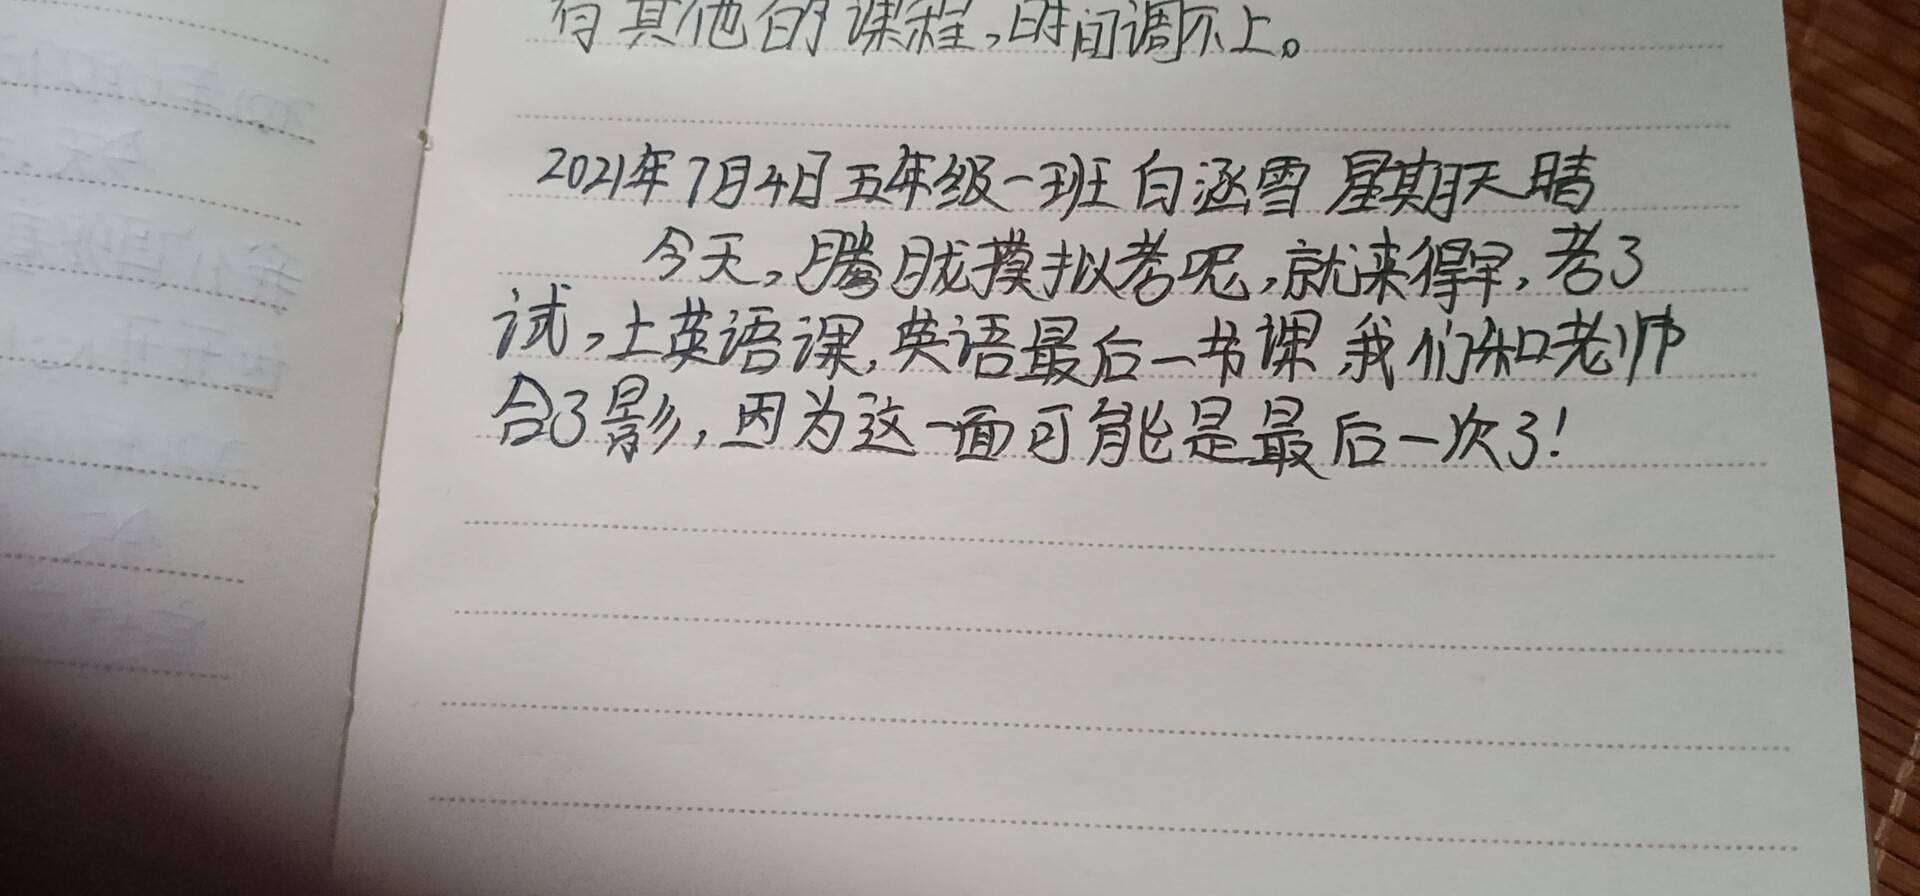 有其他的课程,时间调不上。
2021年7月4日五年级一班 白涵雪 星期天 晴
今天,腾龙摸拟考呢,就来得早,考了
试,上英语课,英语最后一书课 我们和老师
合了影,因为这一面可能是最后一次了!